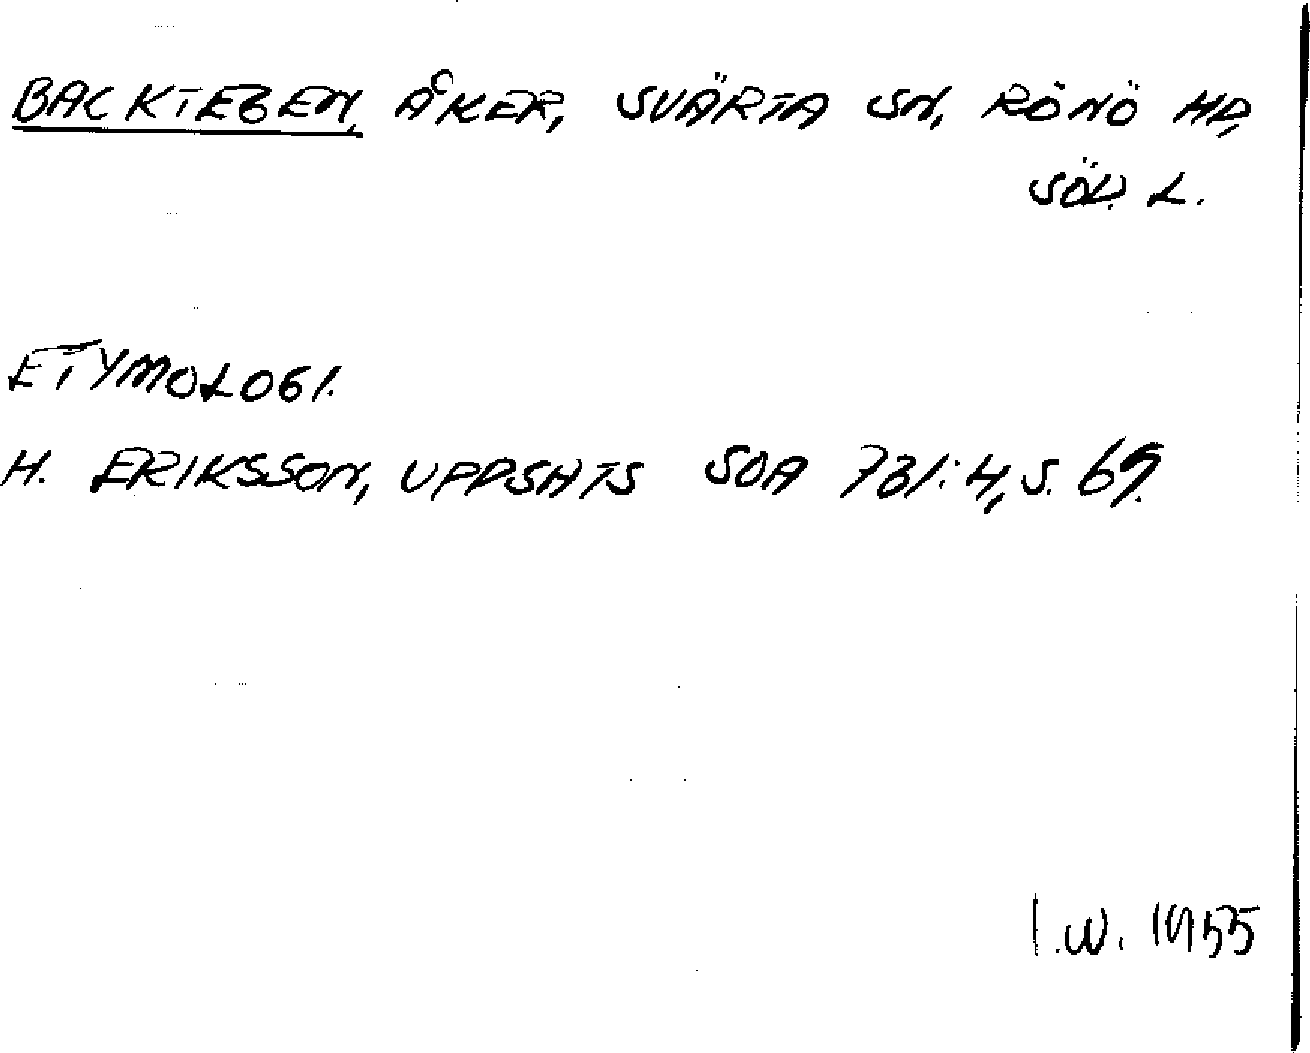 BACKTEGEN, ÅKER, SVÄRTA SN, RÖNÖ HD,
SÖD. L.
ETYMOLOGI.
H. ERIKSSON, UPPSATS SOA 731:4, S. 69.
I.W. 1955